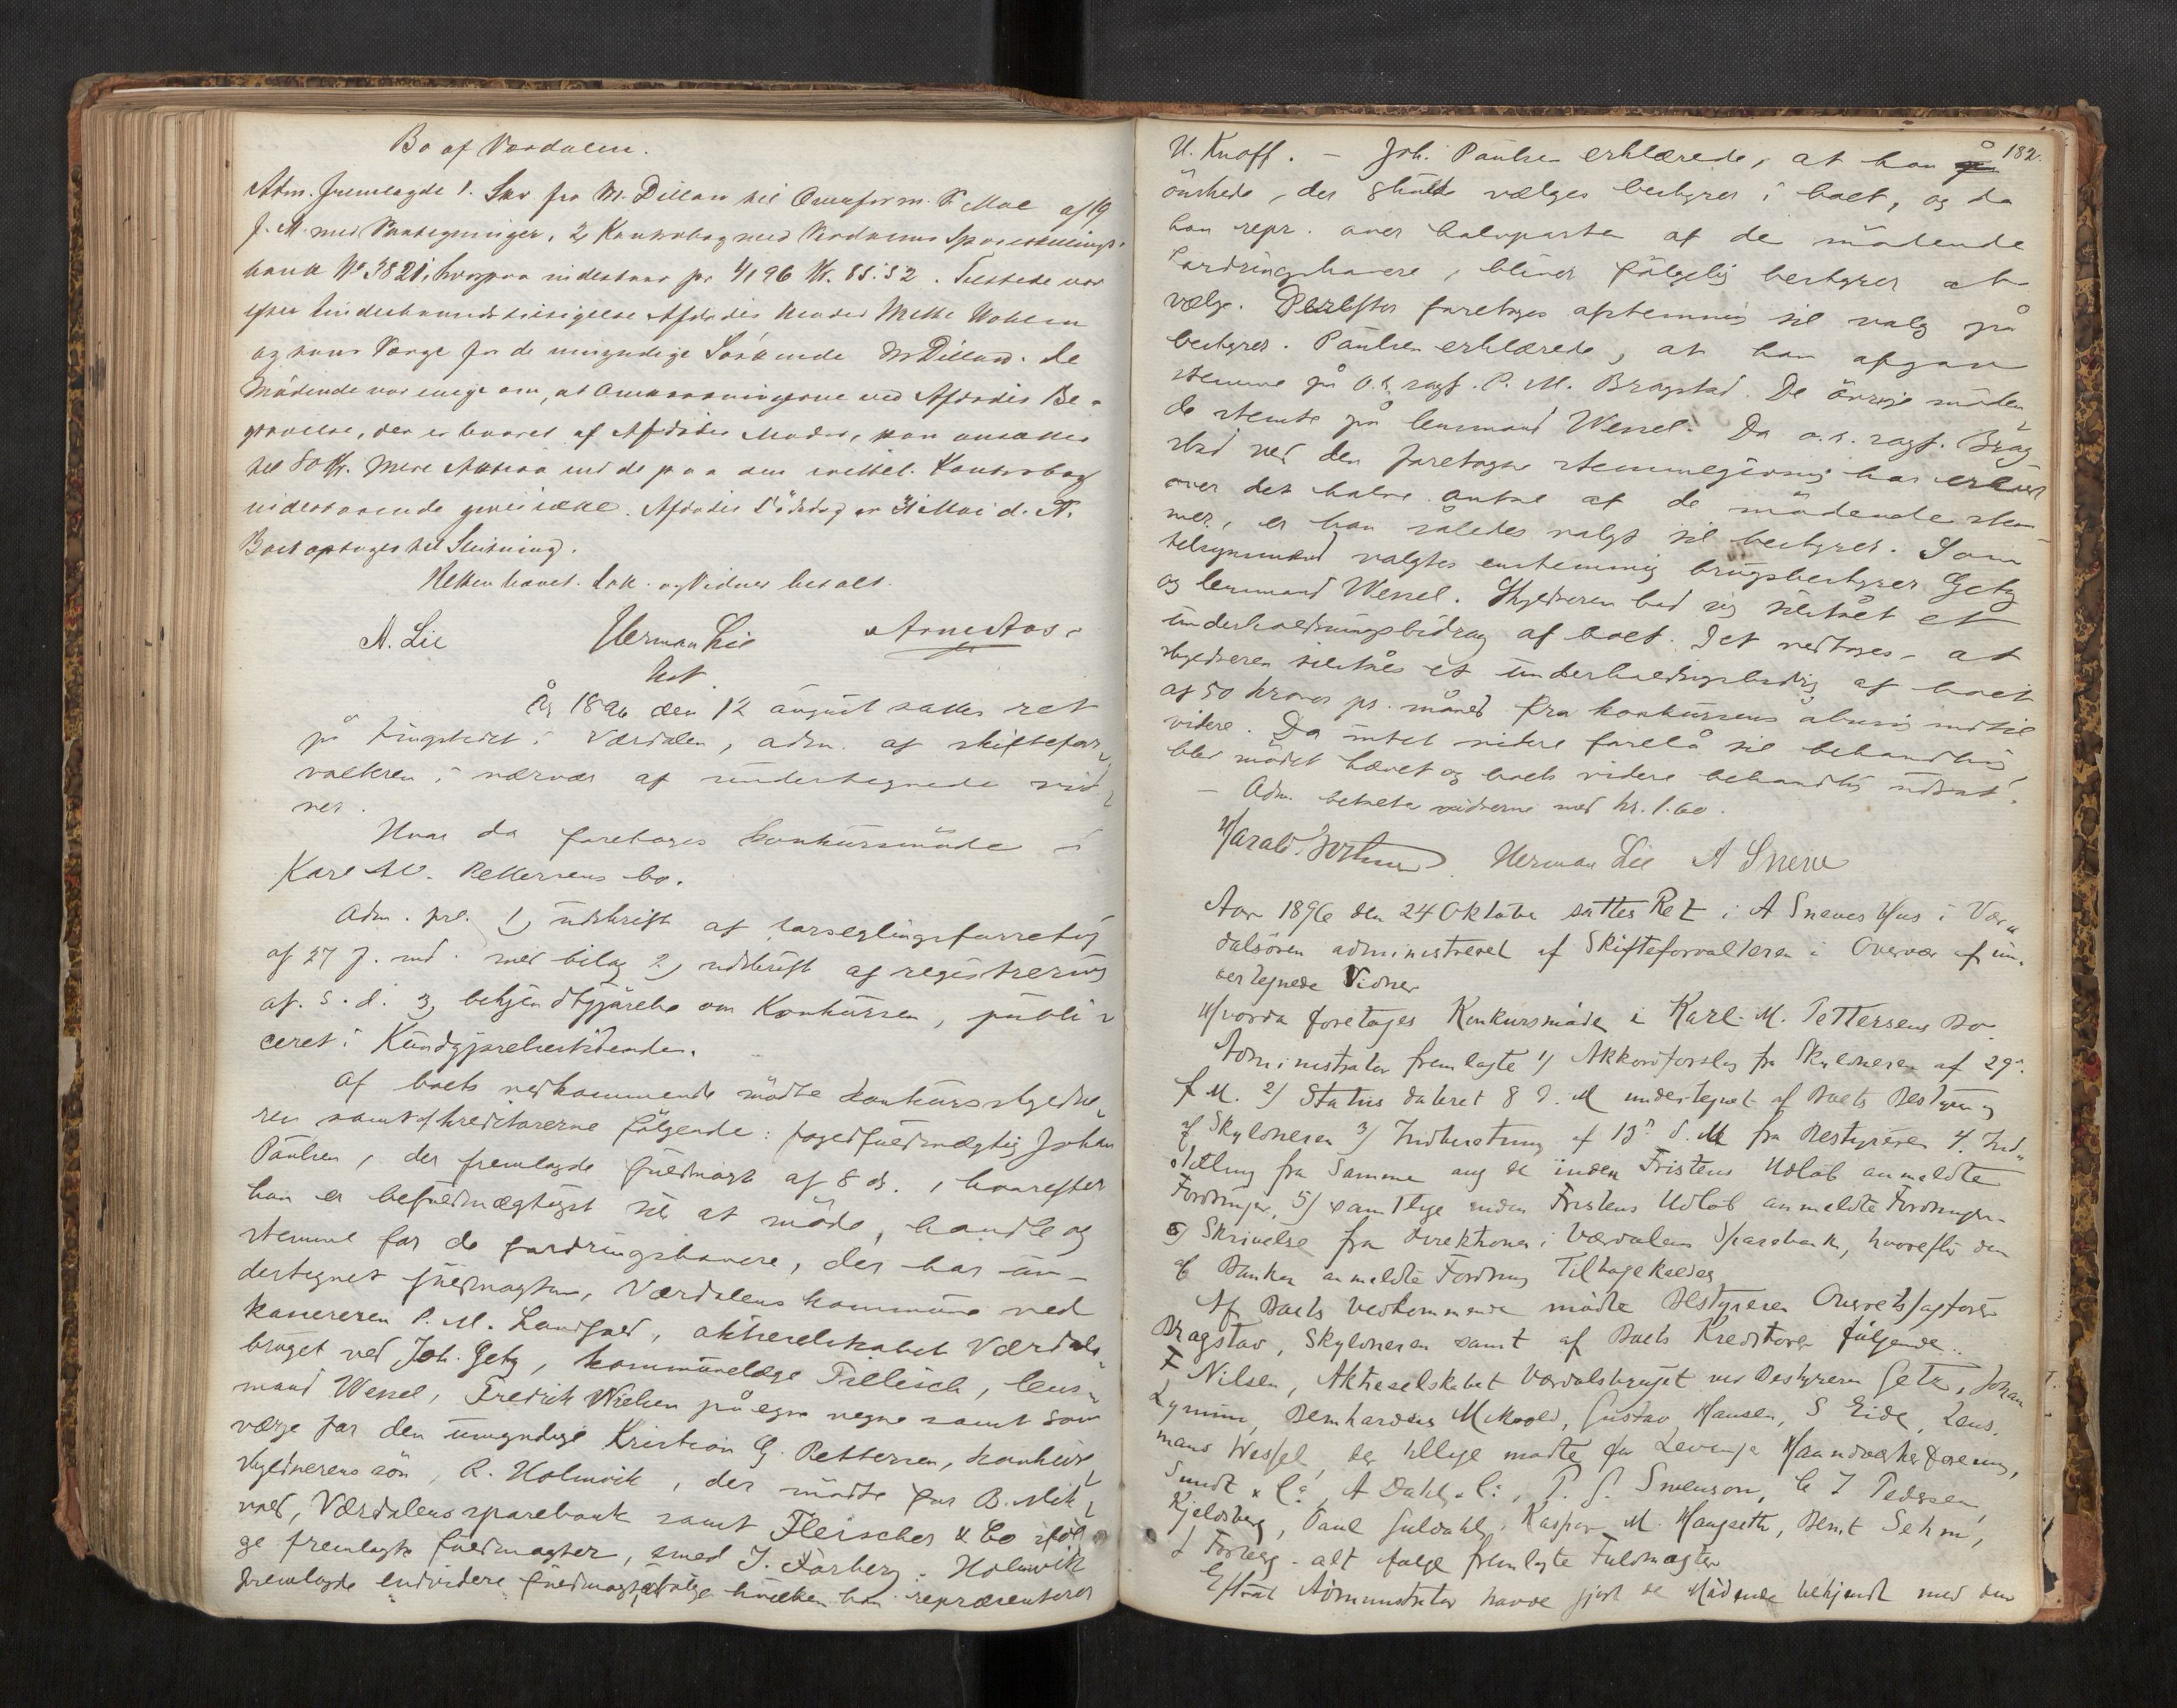 Bo af Værdalen.
Adm. fremlagde 1. Skr fra M. Dillan til Overform. V. Moe af 19
f. M. med Paategninger, 2, Kontrabog med Værdalens Spareskillings-
bank No 3821, hvorpaa indestaar pr 1/1 96 Kr. 85.52. Tilstede var
efter Lensmands tilsigelse Afdødes Moder Mette
og som Værge for de umyndige Søskende M Dillan. De
Mødende var enige om, at Omkostningerne ved Afdødes Be-
gravelse, der er baaret af Afdødes Moder, kan ansættes
til 80 Kr. Mere Aktiva end de paa om meldte Kontrabog
indestaaende gives ikke. Afdødes Dödsdag er 31 Mai d. A.
Boet optoges til Slutning.
Retten hævet. Lok. og Vidner betalt.
A. Lie Herman Lie Arne Aas
kst
År 1896 den 12 august sattes ret
på tingstedet i Værdalen, adm. af skiftefor-
valteren i nærvær af undertegnede vid-
ner.
Hvor da foretoges konkursmöde i
Karl M. Pettersens bo.
Adm. prl. 1, udskrift af forseglingsforretng
af 27 f. md. med bilag 2, udskrift af registrering
af s. d. 3, bekjendtgjörelse om Konkursen, publi-
ceret i Kundgjörelsestidende.
Af boets vedkommende mödte konkursskyldne-
ren samt af kreditorerne fölgende: fogedfuldmægtig Johan
Paulsen, der fremlagde fuldmagt af 8 ds., hvorefter
han er befuldmægtiget til at möde, handle og
stemme for de fordringshavere, der har un-
dertegnet fuldmagten, Værdalens kommune ved
kasereren P. M. Landfald, aktieselskabet Værdals-
bruget ved Joh. Getz, kommunelæge Tillisch, lens-
mand Wessel, Fredrik Wiehen på egne vegne samt som
værge for den umyndige Kristian G. Pettersen, konkurs-
skyldnerens sön, R. Holmvik, der mödte for B. Mik-
vold, Værdalens sparebank samt Fleischer & Co iföl-
ge fremlagte fuldmagter, smed J. Forberg. Holmvik
fremlagde endvidere fuldmagt, ifölge hvilken han repræsenterer
182.
U. Knoff. – Joh. Paulsen erklærede, at han å
önskede, der skulde vælges bestyrer i boet, og da
han repr. over halvparten af de mödende
fordringshavere, bliver fölgelig bestyrer at
vælge. Derefter foretoges afstemning til valg på
bestyrer. Paulsen erklærede, at han afgav
stemme på o.r. sagf. P. M. Bragstad. De övrige möden-
de stemte på lensmand Wessel. Da o.r. sagf. Brag-
stad ved den foretagne stemmegivning har erholdt
over det halve antal af de mödende stem-
mer, er han således valgt til bestyrer. Som
tilsynsmænd valgtes enstemmig brugsbestyrer Getz
og lensmand Wessel. Skyldneren bad sig tilstået et
underholdningsbidrag af boet. Det vedtoges – at
skyldneren tilståes et underholdningsbidrag af boet
af 50 kroner pr. måned fra konkursens åbning indtil
videre. Da intet videre forelå til behandling,
blev mödet hævet og boets videre behandling udsat.
– Adm. betalte vidnerne med kr. 1.60.
Harald Herman Lie A Sneve
Aar 1896 den 24 Oktober sattes Ret i A Sneves Hus i Vær-
dalsören administreret af Skifteforvalteren i Overvær af un-
dertegnede Vidner
Hvorda foretoges Konkursmöde i Karl M. Pettersens Bo.
Administrator fremlagte 1/ Akkordforslag fra Skyldneren af 29.
f. M. 2/ Status dateret 8 d. M undertegnet af Boets Bestyrer og
af Skyldneren 3/ Indberetning af 13. d. M fra Bestyreren 4. Ind-
stilling fra Samme ang de inden Fristens Udlöb anmeldte
Fordringer, 5/ samtlige inden Fristens Udlöb anmeldte Fordringer.
6/ Skrivelse fra Direktionen i Værdalens Sparebank, hvorefter den
af Banken anmeldte Fordring Tilbagekaldes
Af Boets Vedkommende mödte Bestyreren Overretssagförer
Bragstad, Skyldneren samt af Boets Kreditorer fölgende..
F Nilsen, Aktieselskabet Værdalsbruget ved Bestyreren Getz, Johan
Lyning, Bernhardus Mikvold, Gustav Hansen, S Eide, Lens-
mand Wessel, der tillige mödte for Levanger Haandværkerforening,
Sundt & Co, A Dahl & Co, P. S. Svenson, C J Pedersen,
Kjeldsberg, Paul Guldahl, Kaspar M. Haugseth, Bernt Sehm,
J Forberg. alt fölge fremlagte Fuldmagter
Efterat Administrator havde gjort de Mödende bekjendt med den